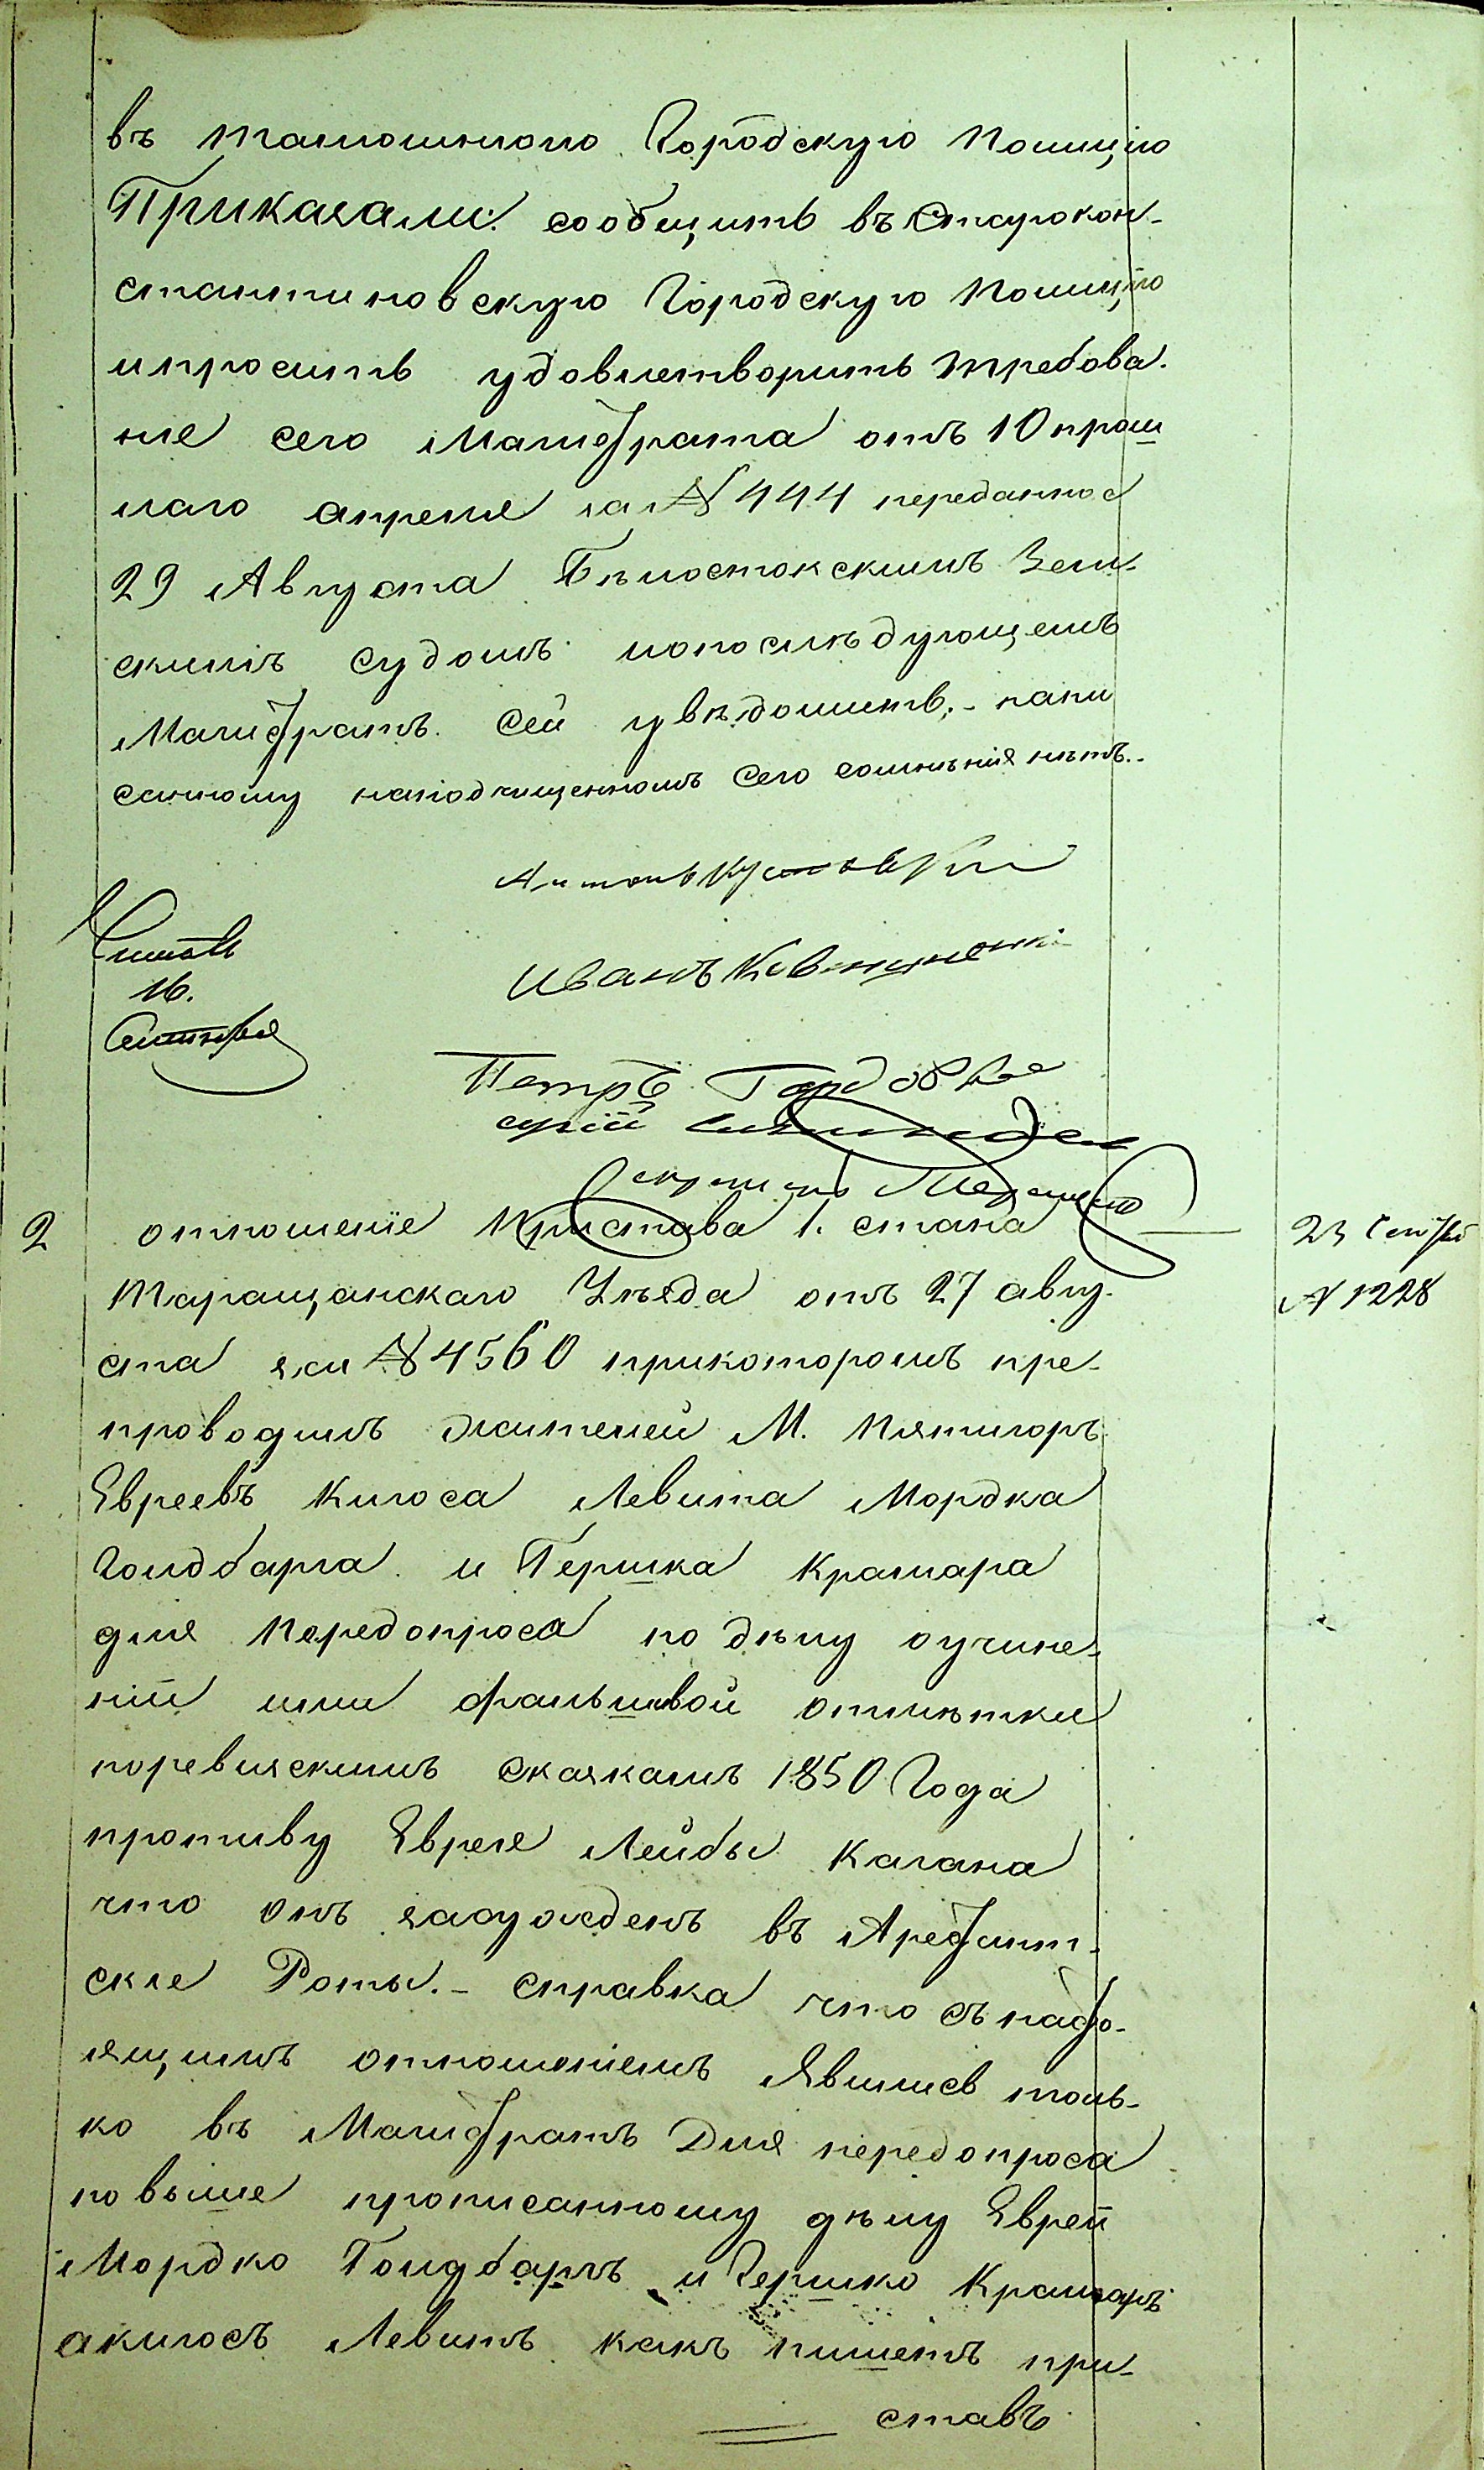 въ тамошнюю Городскую Полицію
Приказали: сообщить въ Старокон-
стантиновскую Городскую Полицію
ипросить удовлетворить требова-
ніе сего Магистрата отъ 10 прош
лаго апреля за № 444 переданное
29 Августа Бѣлостокскимъ Зем-
скимъ Судомъ ипопослѣдующемъ
Магистратъ Сей увѣдомить,- напи
санному наподчищенномъ Сего сомнѣнія нѣтъ.-
Читалъ
16.
Сентября
Антонъ
Иванъ
Петръ
2 отношеніе Пристава 1. стана
Таращанскаго Уѣзда отъ 27 авгу-
ста за № 4560 прикоторомъ пре-
проводилъ жителей М. Пятигоръ
Евреевъ Кигоса Левита Мордка
Голдбарга и Гершка Крамара
для Передопроса по дѣлу оучине-
ній ими фальшивой отмѣтки
поревизскимъ сказкамъ 1850 Года
противу Еврея Лейбы Кагана
что онъ засужденъ въ Арестант-
скіе Роты.- Справка что съ насто-
ящимъ отношеніемъ Явились толь-
ко въ Магистратъ Для передопроса
повыше прописанному дѣлу Евреи
Мордко Голдбаргъ и Гершко Крамаръ
акигосъ Левитъ какъ пишетъ при-
ставъ
23 Сентяб
№ 1228